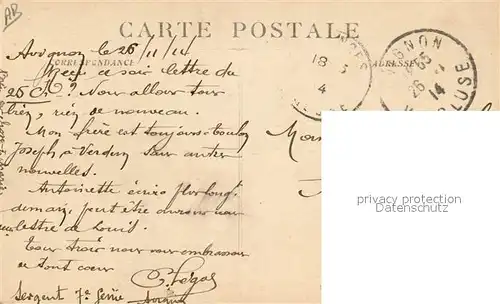 AR
CARTE POSTALE
CORRESPONDANCE
ADRESSE
Avignon le 26/11/14
Reçu ce soir lettre du
25 Ct? Nous allons tous
bien, rien de nouveau.
Mon frère est toujours à Toulon
Joseph à Verdun sans autres
nouvelles.
Antoinette écrira plus longt
demain, peut être aurons nous
lettre de Louis.
Tous trois nous vous embrassons
de tout coeur
Sergent 7e Génie Avignon
AVIGNON
26 -11
14
VAUCLUSE
18
4
privacy protection
Datenschutz